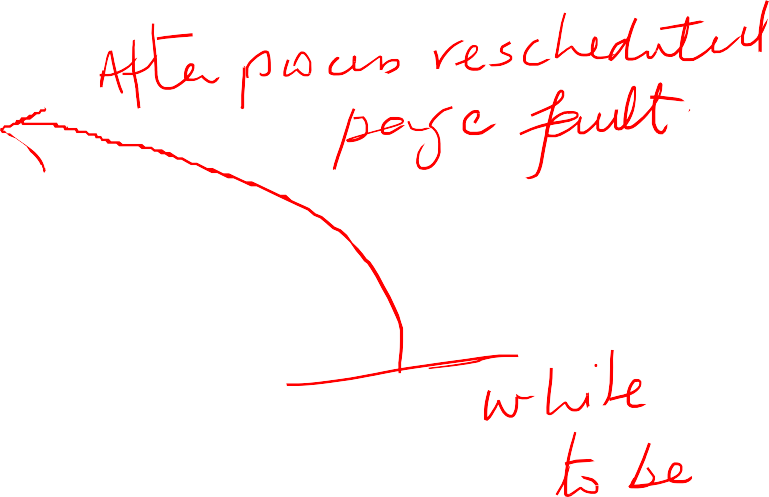 After process rescheduled
page fault
while
to be